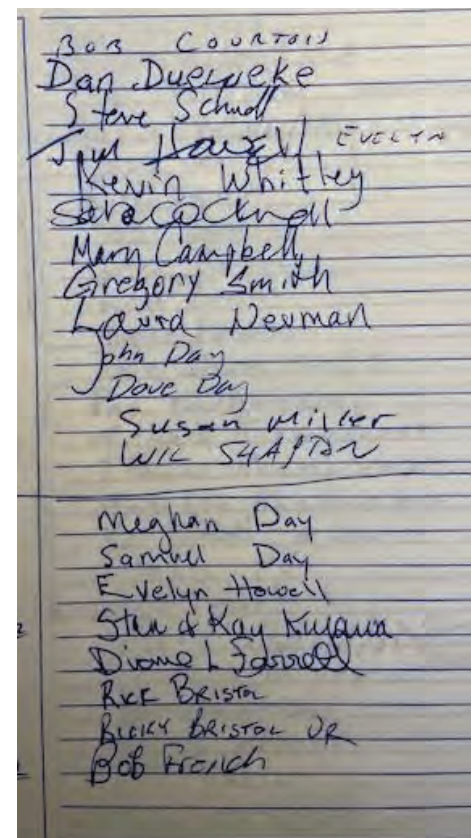 BOB COURTOIS
Dan Duerweke
Steve Schnoll
Jim Howell, EVELYN
Kevin Whitley
Sara Cocknell
Mary Campbell
Gregory Smith
Laura Neuman
John Day
Dave Day
Susan Miller
WIL
Meghan Day
Samuel Day
Evelyn Howell
Stan & Kay Kujawa
Diane L Farrell
RICK BRISTOL
RICKY BRISTOL JR
Bob French